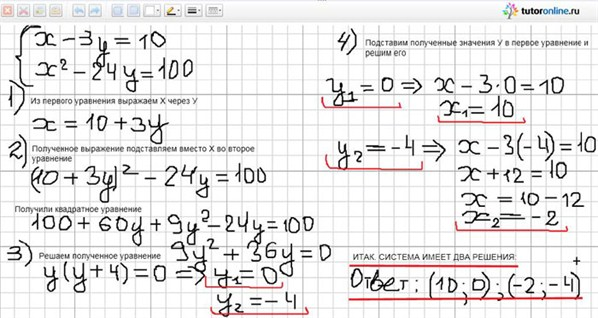 tutoronline.ru
{ x - 3y = 10
x² - 24y = 100
1) Из первого уравнения выражаем Х через У
x = 10 + 3y
2) Полученное выражение подставляем вместо Х во второе
уравнение
(10 + 3y)² - 24y = 100
Получили квадратное уравнение
100 + 60y + 9y² - 24y = 100
9y² + 36y = 0
3) Решаем полученное уравнение
y(y+4) = 0 ⇒ y₁ = 0
y₂ = -4
4) Подставим полученные значения У в первое уравнение и
решим его
y₁ = 0 ⇒ x - 3·0 = 10
x₁ = 10
y₂ = -4 ⇒ x - 3(-4) = 10
x + 12 = 10
x = 10 - 12
x₂ = -2
ИТАК. СИСТЕМА ИМЕЕТ ДВА РЕШЕНИЯ:
Ответ: (10; 0); (-2; -4)